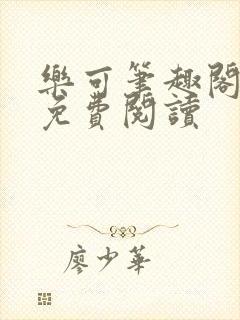 樂可筆趣閣
免費閱讀
廖少華